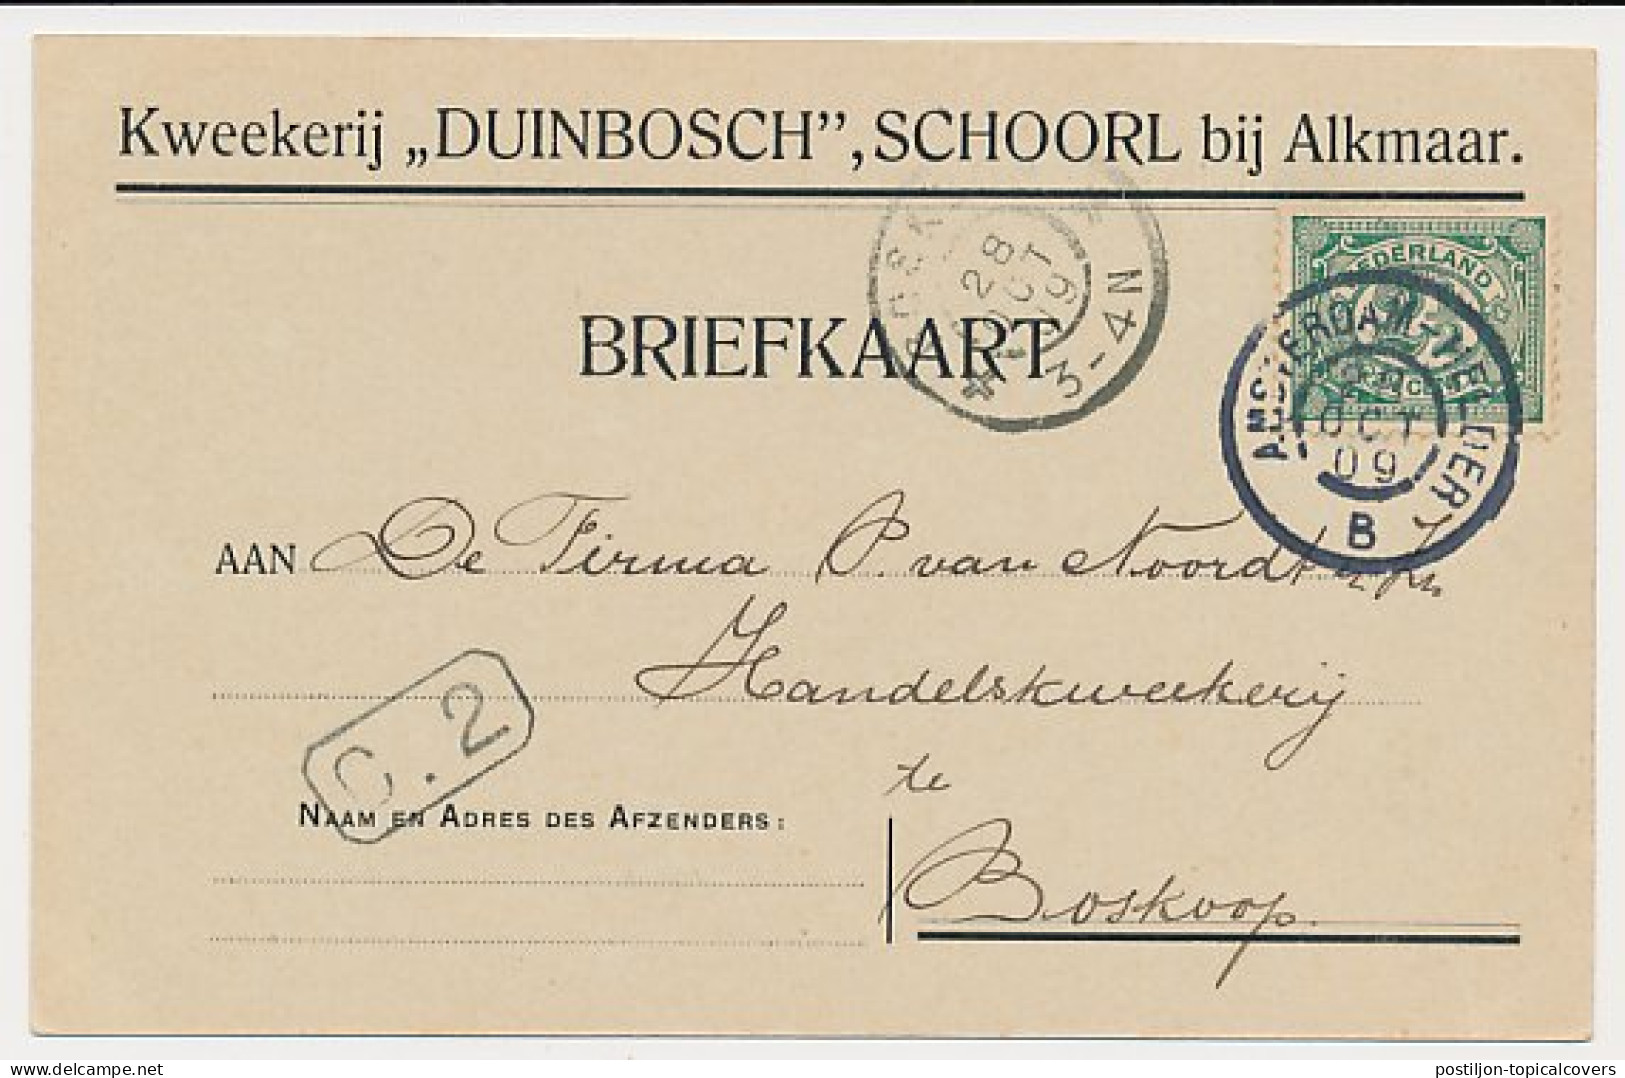 Kweekerij „DUINBOSCH”, SCHOORL bij Alkmaar.
BRIEFKAART
28
OCT
09
3-4N
NEDERLAND
AMSTERDAM-
OCT
09
B
AAN De Firma P. van Noordt & Zn
Handelskweekerij
te
Boskoop.
C.2
NAAM EN ADRES DES AFZENDERS:
delcampe.net
postiljon-topicalcovers